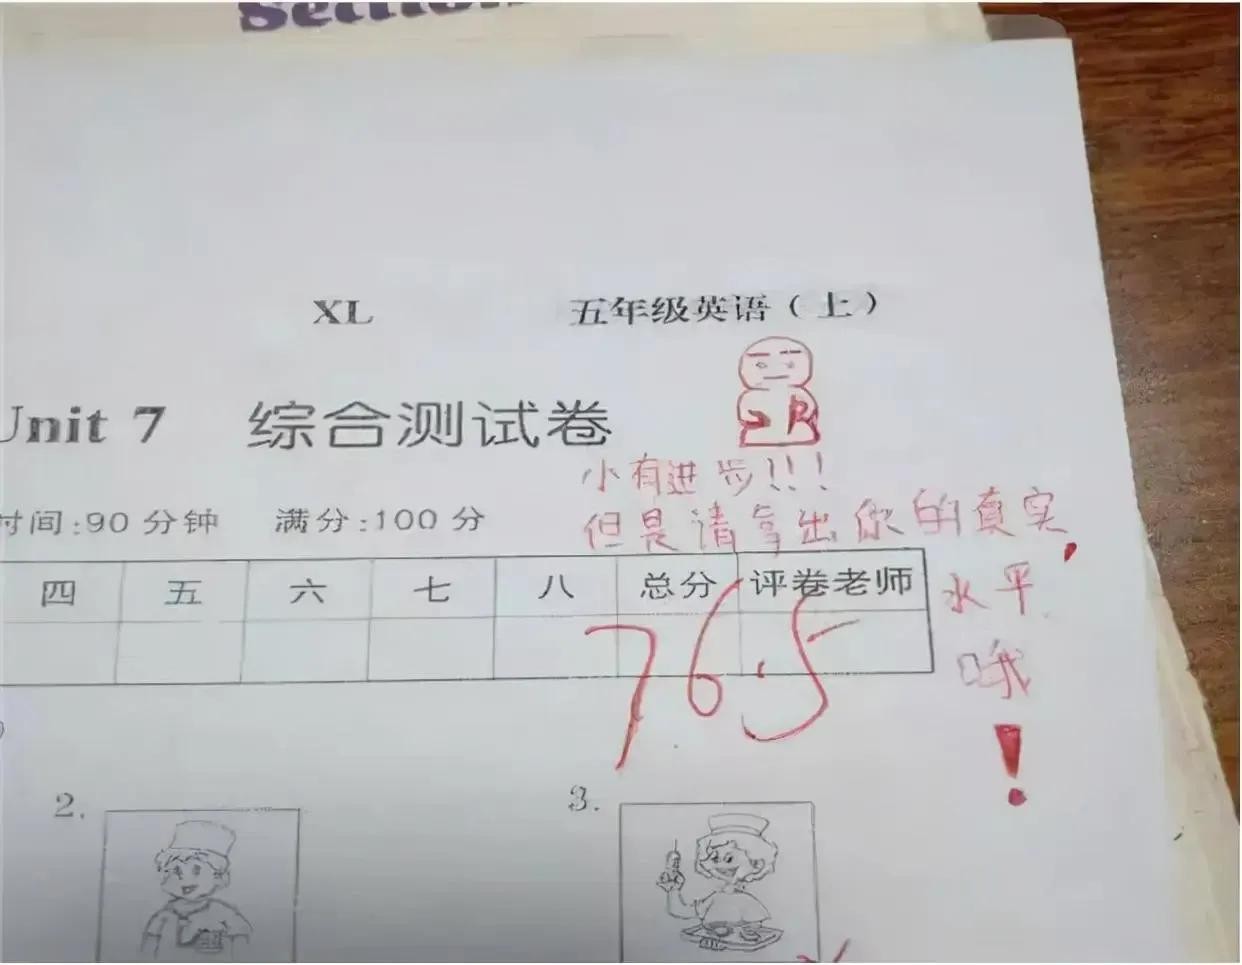 XL 五年级英语（上）
Unit 7 综合测试卷
小有进步!!!
时间:90分钟 满分:100分
但是请拿出你的真实
水平
哦
!
四 五 六 七 八 总分 评卷老师
76.5
2.
3.